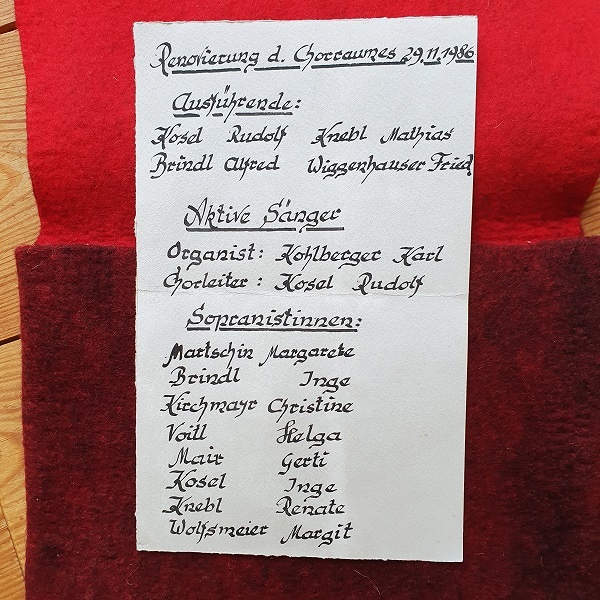 Renovierung d. Chorraumes 29.11.1986
Ausführende:
Kosel Rudolf Knebl Mathias
Brindl Alfred Wiggenhauser Fried
Aktive Sänger
Organist: Kohlberger Karl
Chorleiter: Kosel Rudolf
Sopranistinnen:
Martschin Margarete
Brindl Inge
Kirchmayr Christine
Voitl Helga
Mair Gerti
Kosel Inge
Knebl Renate
Wolfsmeier Margit